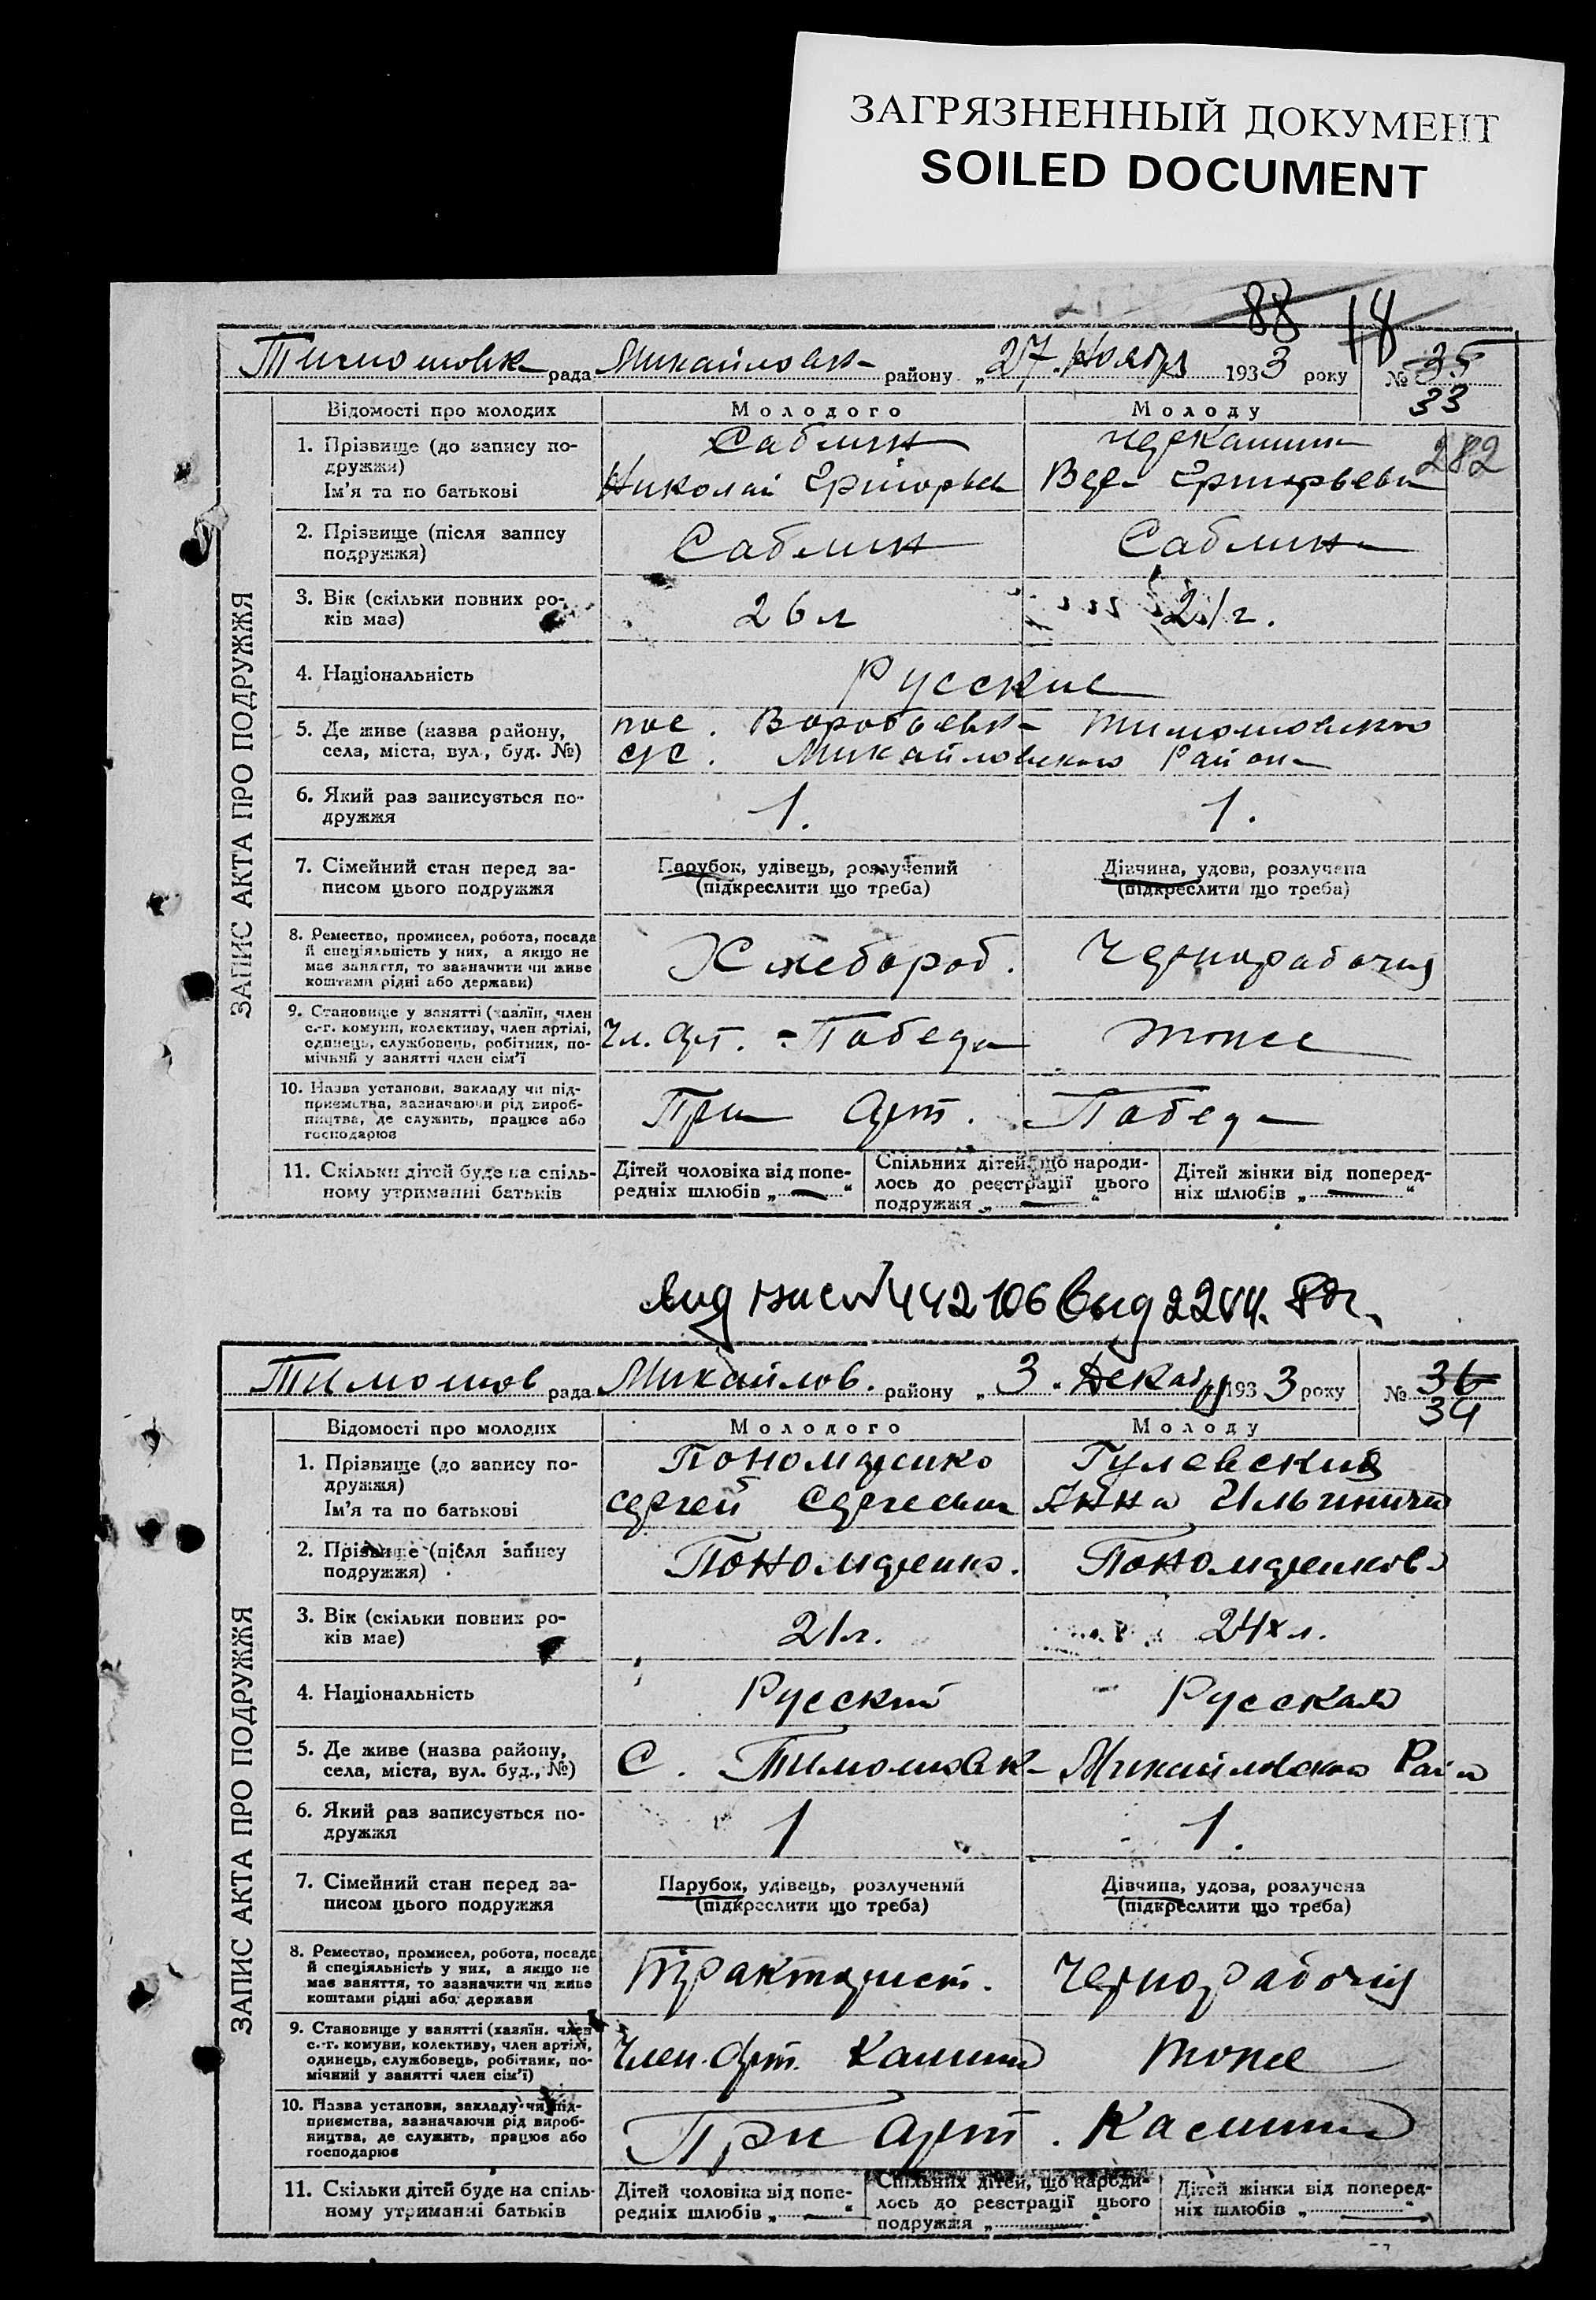 ЗАГРЯЗНЕННЫЙ ДОКУМЕНТ
SOILED DOCUMENT
88 18
Тимошовк рада Михайловск району „27. Ноября 1933 року № 35
33
Відомості про молодих Молодого Молоду
282
1. Прізвище (до запису по-
дружжя)
Ім'я та по батькові
Саблин
Николай Григорьев
Черкашин
Вера Григорьевн
2. Прізвище (після запису
подружжя)
Саблин
Саблина
3. Вік (скільки повних ро-
ків має)
26 л
21 г.
4. Національність
Русские
5. Де живе (назва району,
села, міста, вул., буд. №)
пос. Воробьевк Тимошовского
с/с. Михайловского Района
6. Який раз записується по-
дружжя
1.
1.
7. Сімейний стан перед за-
писом цього подружжя
Парубок, удівець, розлучений
(підкреслити що треба)
Дівчина, удова, розлучена
(підкреслити що треба)
8. Ремество, промисел, робота, посада
й спеціяльність у них, а якщо не
має заняття, то зазначити чи живе
коштами рідні або держави)
Хлебороб.
Чернорабочия
9. Становище у занятті (хазяїн, член
с.-г. комуни, колективу, член артілі,
одинець, службовець, робітник, по-
мічний у занятті член сім'ї
Чл. арт. - Победа
тоже
10. Назва установи, закладу чи під-
приємства, зазначаючи рід вироб-
ництва, де служить, працює або
господарює
При Арт. Победа
11. Скільки дітей буде на спіль-
ному утриманні батьків
Дітей чоловіка від попе-
редніх шлюбів „ “
Спільних дітей, що народи-
лось до реєстрації цього
подружжя „ “
Дітей жінки від поперед-
ніх шлюбів „ “
ЗАПИС АКТА ПРО ПОДРУЖЖЯ
442106 выд 22
Тимошов рада Михайлов. району „3. Декабря 1933 року № 36
34
Відомості про молодих Молодого Молоду
1. Прізвище (до запису по-
дружжя)
Ім'я та по батькові
Пономаренко
Сергей Сергеевич
Гулевская
Анна Ильинична
2. Прізвище (після запису
подружжя)
Пономаренко.
Пономаренкова
3. Вік (скільки повних ро-
ків має)
21 л.
24х л.
4. Національність
Русский
Русская
5. Де живе (назва району,
села, міста, вул. буд., №)
С. Тимошовк Михайловского Рай
6. Який раз записується по-
дружжя
1
1.
7. Сімейний стан перед за-
писом цього подружжя
Парубок, удівець, розлучений
(підкреслити що треба)
Дівчина, удова, розлучена
(підкреслити що треба)
8. Ремество, промисел, робота, посада
й спеціяльність у них, а якщо не
має заняття, то зазначити чи живе
коштами рідні або держави
Тракторист.
Чернорабочия
9. Становище у занятті (хазяїн. член
с.-г. комуни, колективу, член артілі,
одинець, службовець, робітник, по-
мічний у занятті член сім'ї)
Член. Арт.
тоже
10. Назва установи, закладу чи під-
приємства, зазначаючи рід вироб-
ництва, де служить, працює або
господарює
При Арт.
11. Скільки дітей буде на спіль-
ному утриманні батьків
Дітей чоловіка від попе-
редніх шлюбів „ “
Спільних дітей, що народи-
лось до реєстрації цього
подружжя „ “
Дітей жінки від поперед-
ніх шлюбів „ “
ЗАПИС АКТА ПРО ПОДРУЖЖЯ